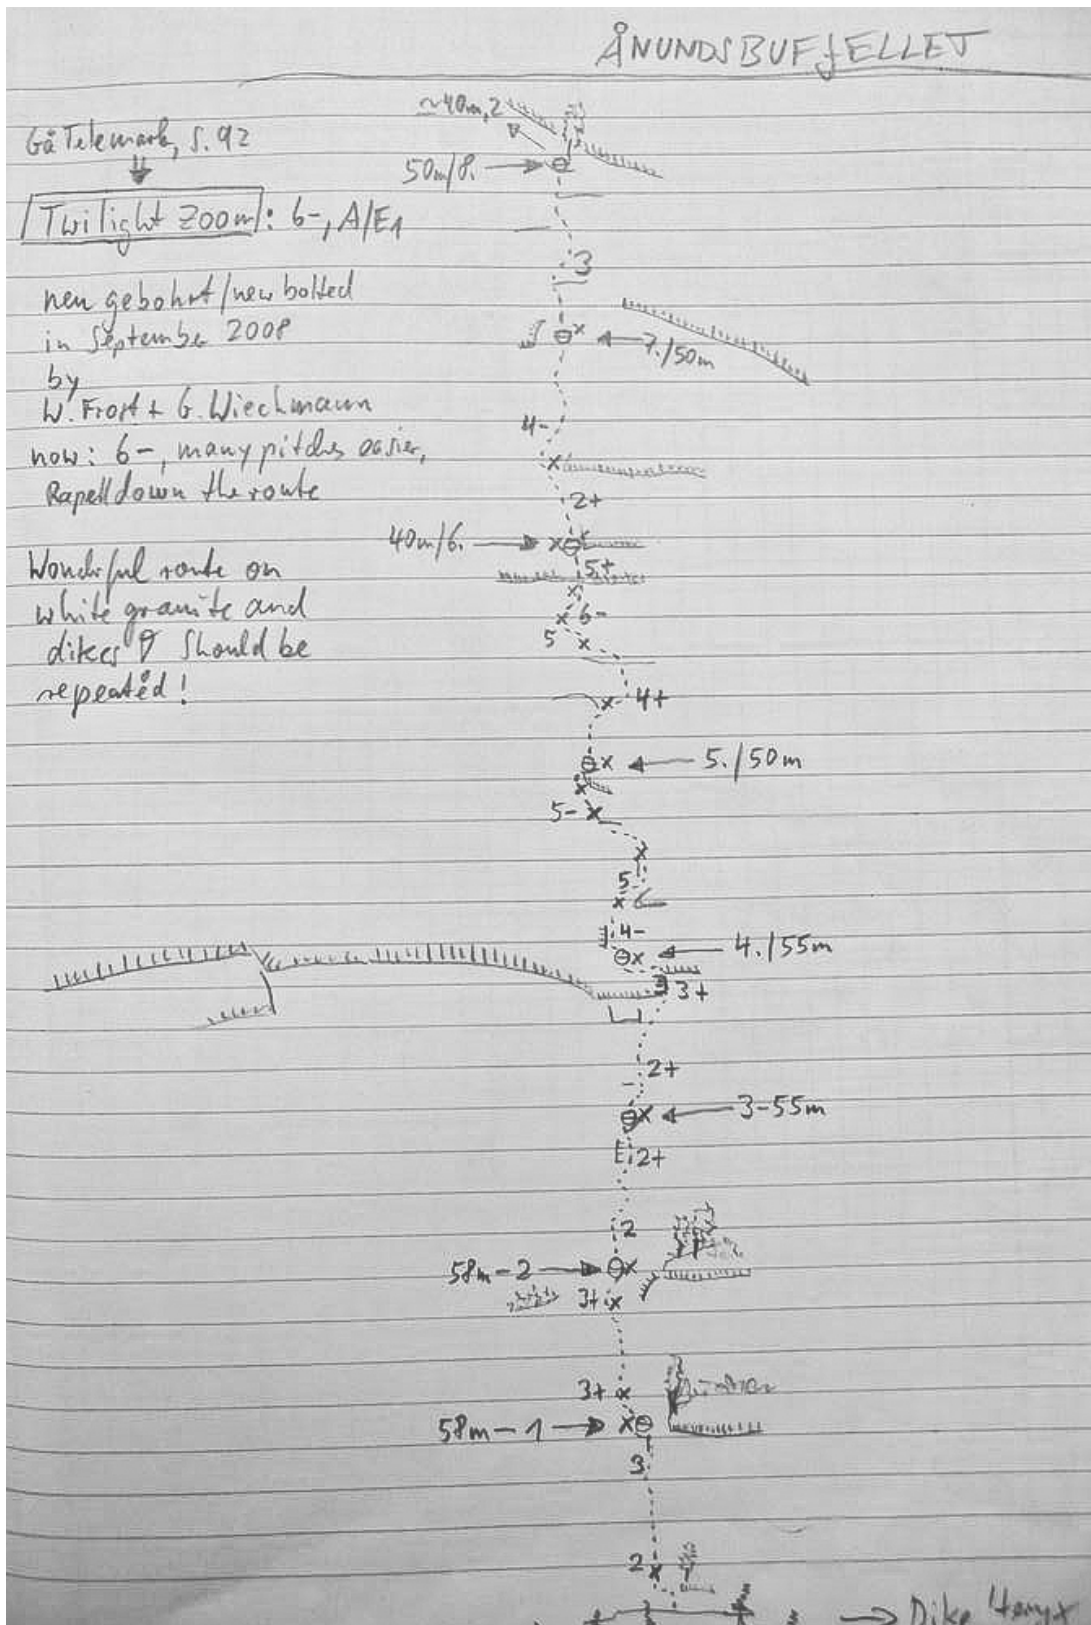 ÅNUNDSBUFJELLET
~40m, 2
Gå Telemark, S. 92
50m/8.
Twilight Zoom: 6-, A/E1
3
neu gebohrt/new bolted
in September 2008
7./50m
by
W. Frost + G. Wiechmann
4-
now: 6-, many pitches easier,
Rapell down the route
2+
40m/6.
5+
Wonderful route on
white granite and
6-
5
dikes should be
repeated!
4+
5./50m
5-
5
4-
4./55m
3+
2+
3-55m
2+
2
58m-2
3+
3+
58m-1
3
2
Dike